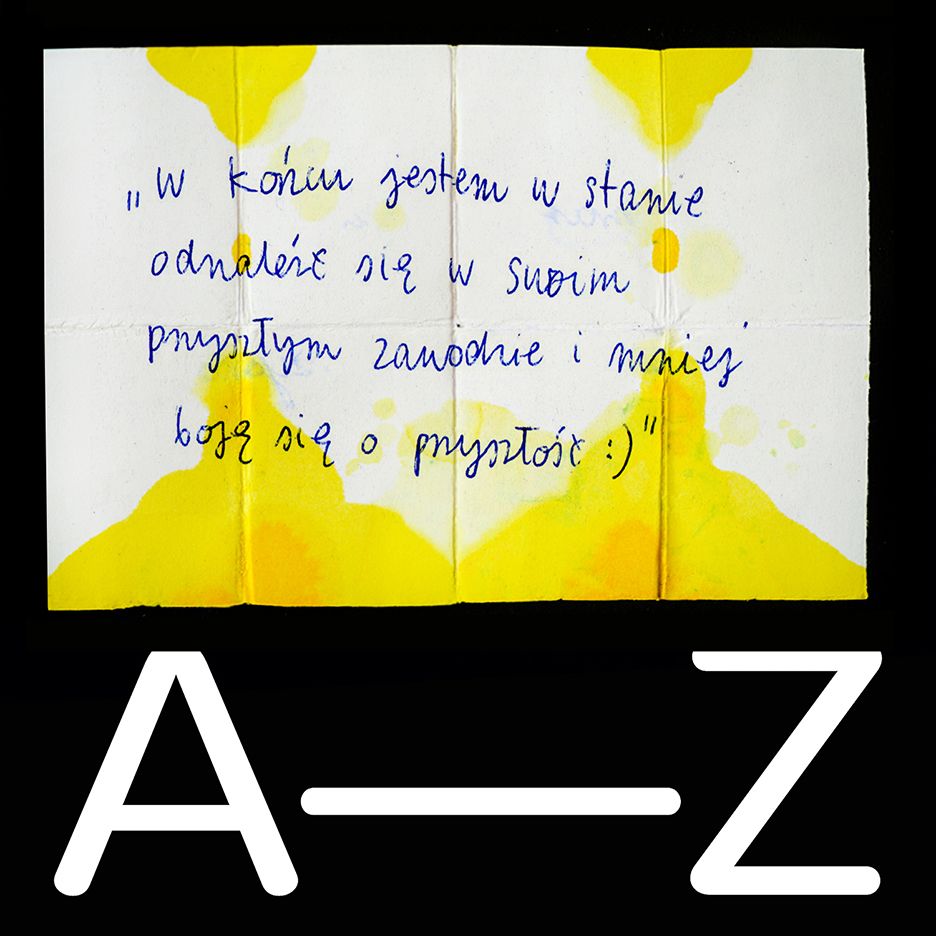 „W końcu jestem w stanie
odnaleźć się w swoim
przyszłym zawodzie i mniej
boję się o przyszłość :)"
A—Z